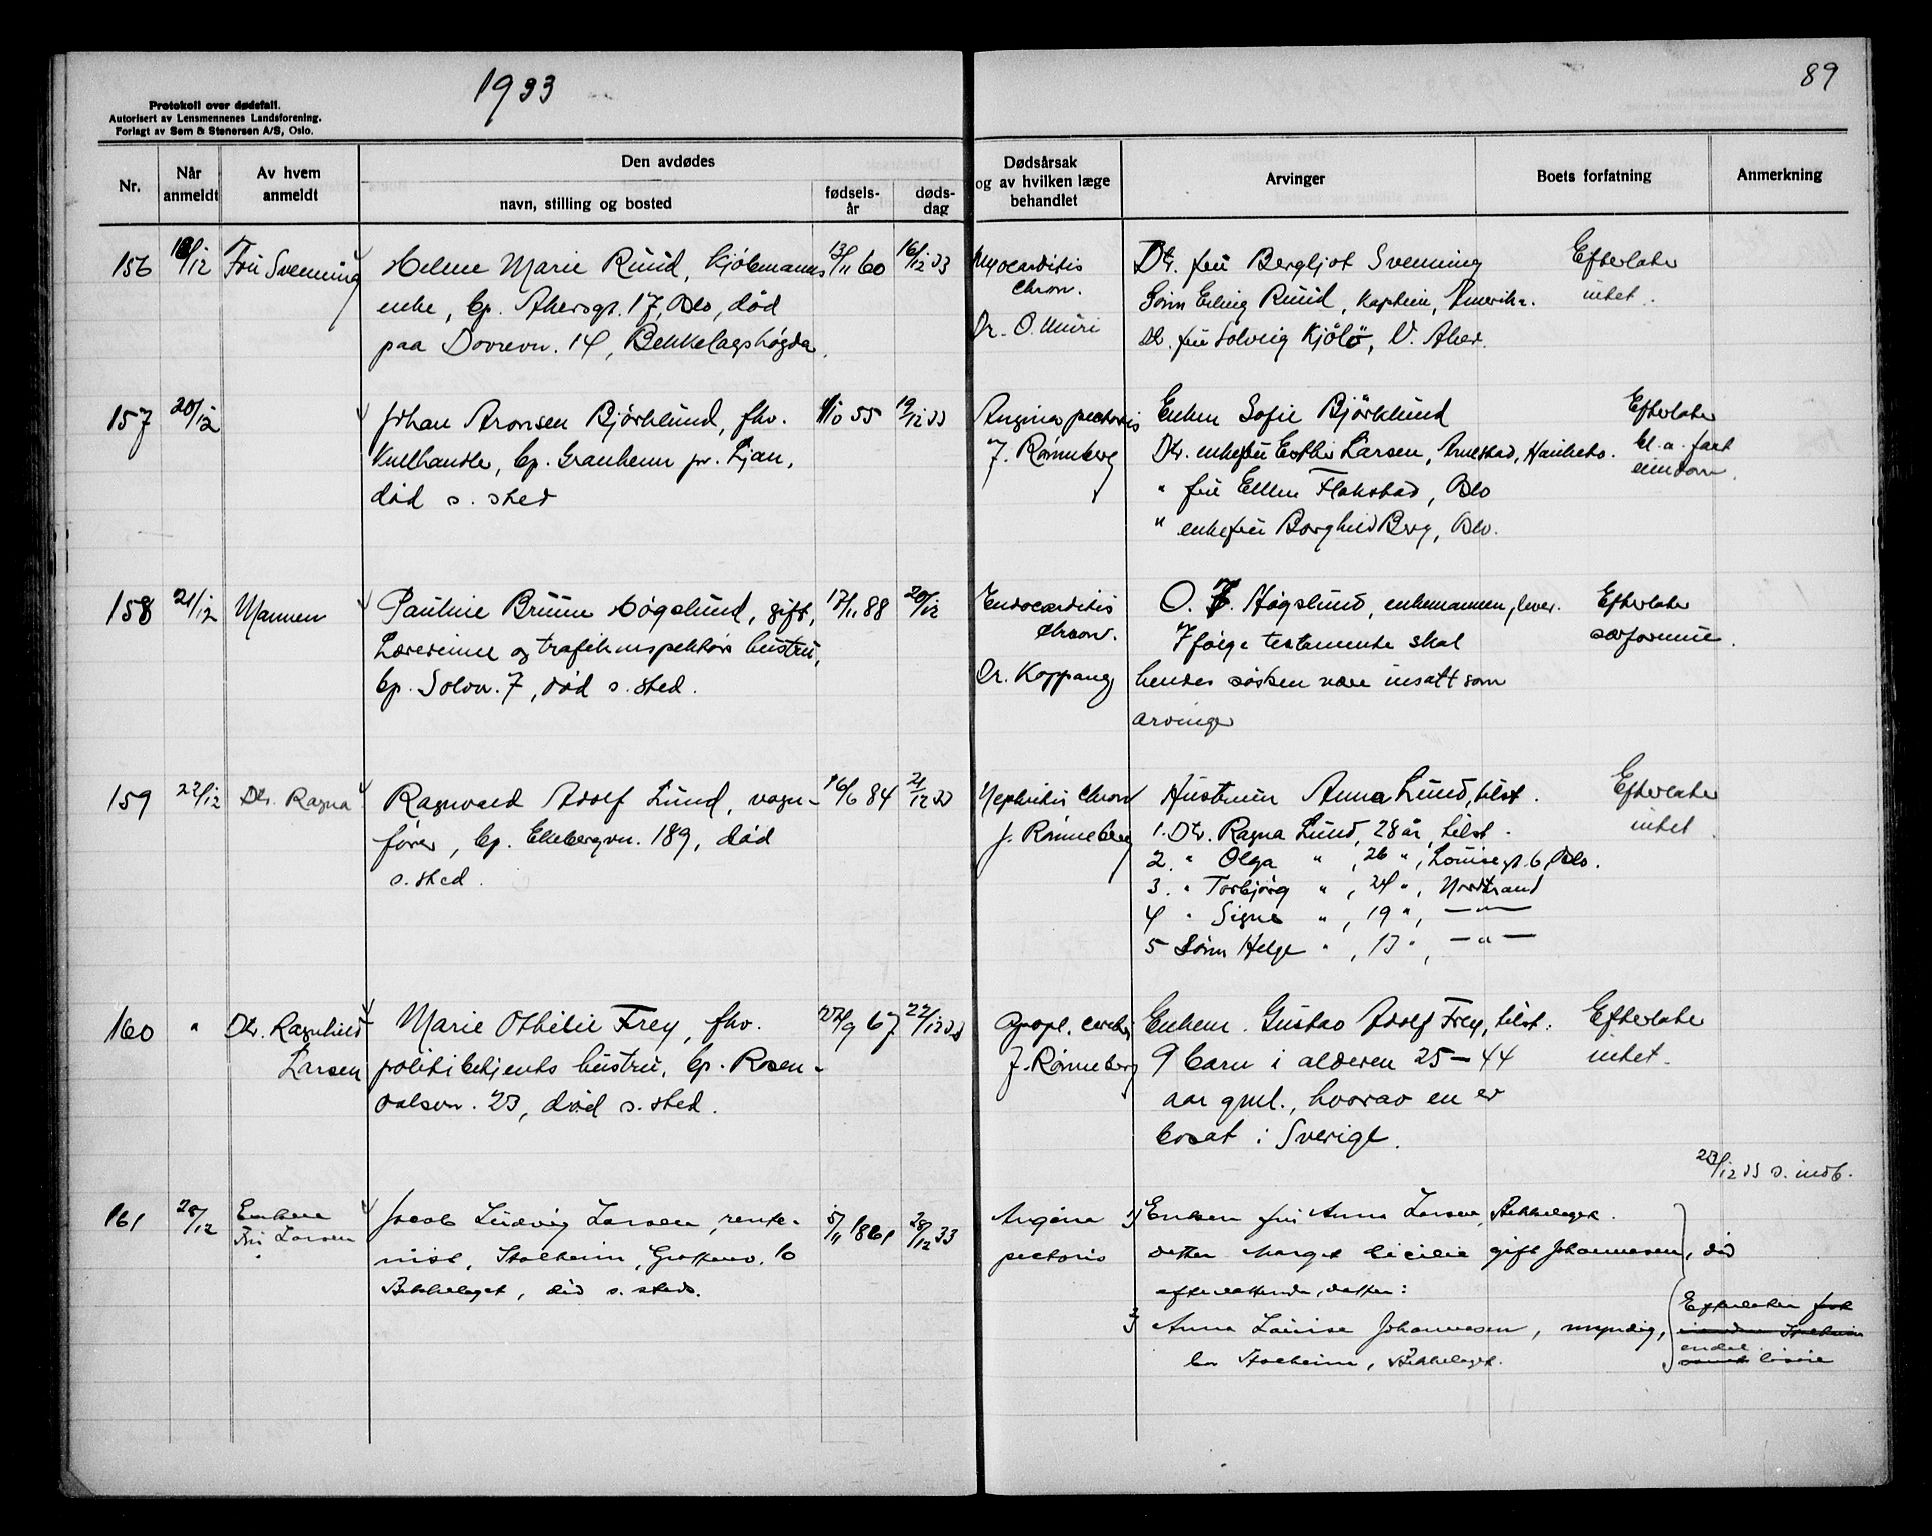 1933
89
Protokoll over dødsfall.
Autorisert av Lensmennenes Landsforening.
Forlagt av Sem & Stenersen A/S, Oslo.
Nr.
Når anmeldt
Av hvem anmeldt
Den avdødes
navn, stilling og bosted
fødsels-år
døds-dag
Dødsårsak og av hvilken læge behandlet
Arvinger
Boets forfatning
Anmerkning
156 18/12 Fru Svenning Helene Marie Ruud, kjøbmanns 13/11 60 16/12 33 Myocarditis Dtr. fru Bergljot Svenning Efterlater
enke, bp. Akersgt. 17, Oslo, død chron. Sønn Erling Ruud, kaptein, Amerika. intet.
paa Dovrevn. 14, Bekkelagshøgda. Dr. O. Dtr. fru Solveig Kjølø, V. Aker.
157 20/12 Johan Aronsen Bjørklund, fhv. /10 55 19/12 33 Angina pectoris Enken Sofie Bjørklund Efterlater
Kullhandler, bp. Granheim pr. Ljan, J. Rønneberg Dtr. enkefru Esther Larsen, Hauketo. bl. a. fast
død s. sted " fru Ellen Flakstad, Oslo eiendom.
" enkefru Borghild Berg, Oslo.
158 21/12 Mannen Pauline Bruun Høgslund, gift, 17/11 88 20/12 Endocarditis O. F. Høgslund, enkemannen, lever. Efterlater
Lærerinne og trafikinspektørs hustru, chron. Ifølge testamente skal særformue.
bp. Solvn. 7, død s. sted. Dr. Koppang hendes søsken være insatt som
arvinger
159 22/12 Dtr. Ragna Ragnvald Adolf Lund, vogn- 16/6 84 21/12 33 Nephritis chron Hustruen Anna Lund, tilst. Efterlater
fører, bp. Ekebergvn. 189, død J. Rønneberg 1. Dtr. Ragna Lund, 28 år, tilst. intet.
s. sted. 2. " Olga " , 26 ", Louisegt. 6, Oslo.
3. " Torbjørg " , 24 ", Nordstrand
4 " Signe " , 19 ", —"—
5 Sønn Helge " , 13 ", —"—
160 " Dtr. Ragnhild Marie Othilie Frey, fhv. 27/9 67 22/12 33 Apopl. cerebri Enkem. Gustav Adolf Frey, tilst. Efterlater
Larsen politibetjents hustru, bp. Rosen- J. Rønneberg 9 barn i alderen 25–44 intet.
dalsvn. 23, død s. sted. aar gml., hvorav en er
bosat i Sverige.
23/12 33 s. indb.
161 28/12 Enken Jacob Ludvig Larsen, rente- 5/11 1861 28/12 33 Angina 1) Enken fru Anna Larsen, Bekkelaget.
Fru Larsen nist, Stolheim, Grottenv. 10 pectoris datter Margot Cicilie gift Johannesen, død
Bekkelaget, død s. steds. efterlatende datter:
2) Anna Louise Johannesen, myndig, Efterlater fast
bor Stolheim, Bekkelaget. endel løsøre